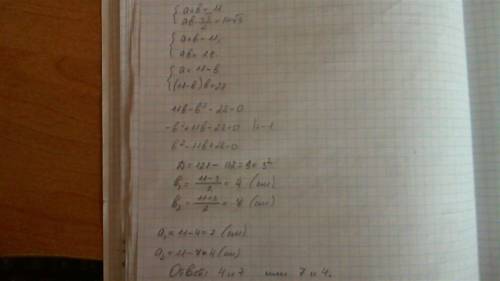 a+b=11
a+b=11,
a=11-b
(11-b)b=28
11b-b²-28=0
-b²+11b-28=0 |:-1
b²-11b+28=0
D=121-112=9=3²
b₁=(11-3)/2=4 (см)
b₂=(11+3)/2=
a₁=11-4=7 (см)
a₂=11-7=4 (см)
Ответ: 4 и 7 или 7 и 4.